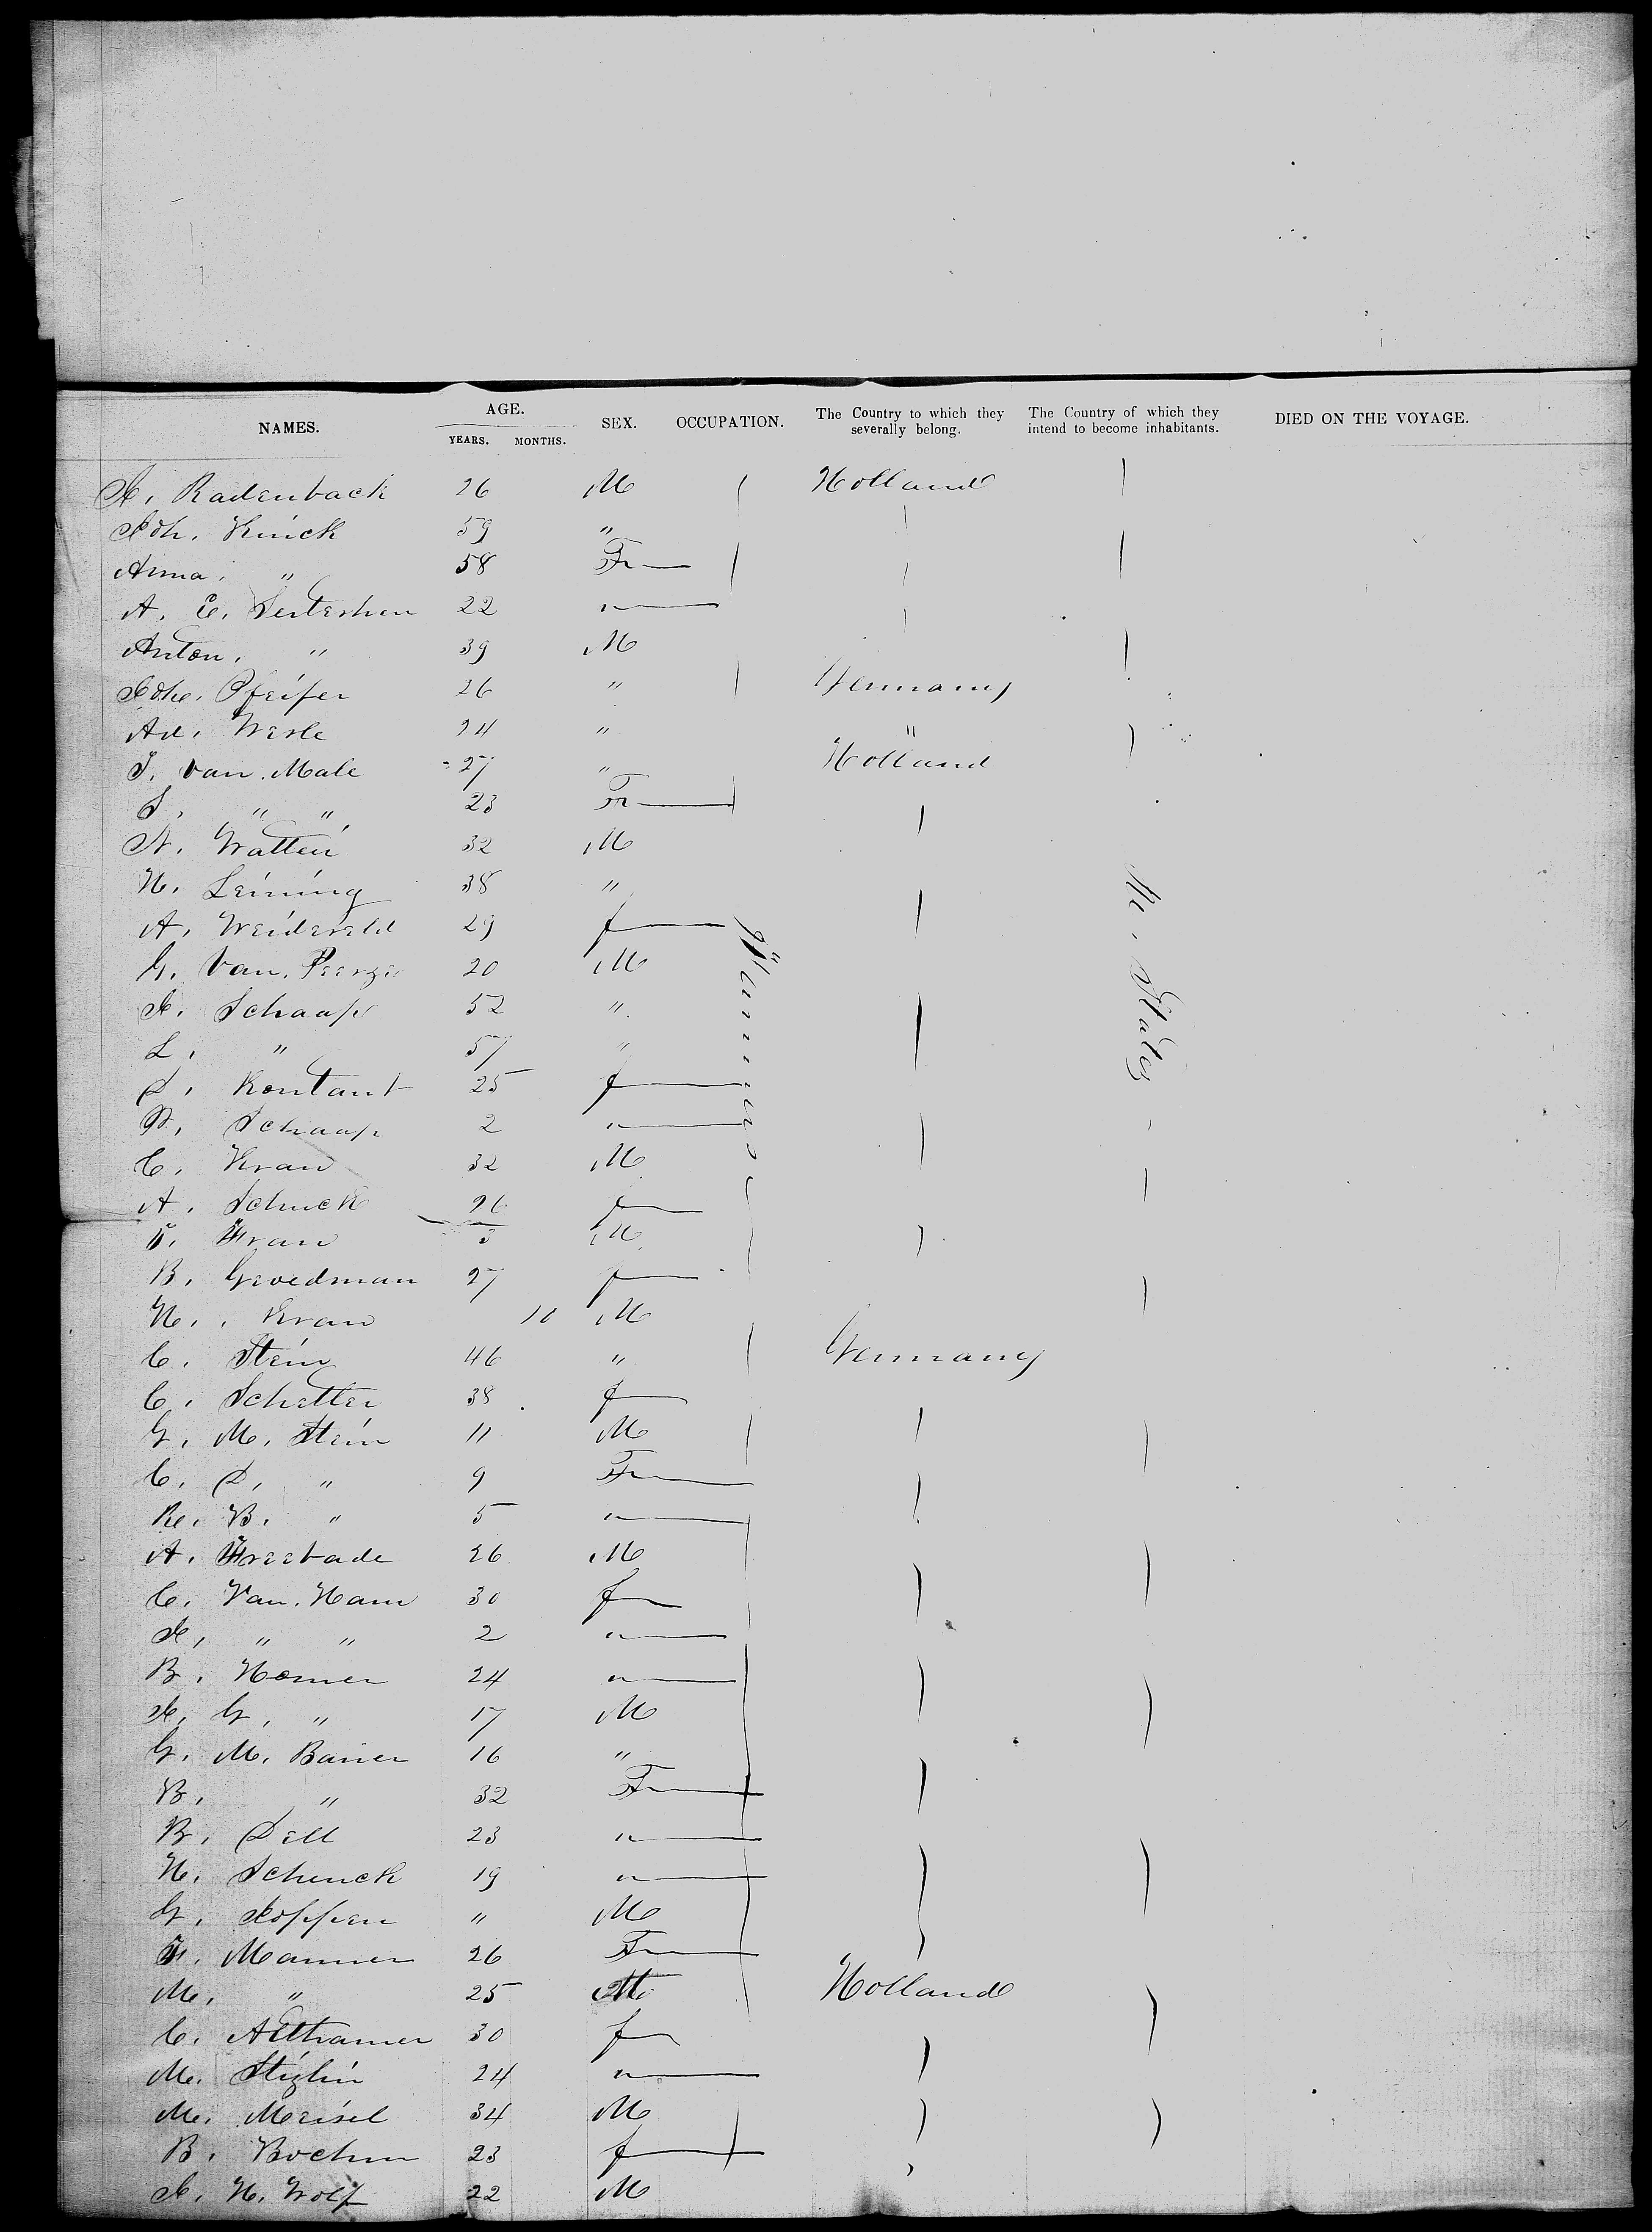 NAMES. AGE. YEARS. MONTHS. SEX. OCCUPATION. The Country to which they severally belong. The Country of which they intend to become inhabitants. DIED ON THE VOYAGE.
J. Radenback 26 M Holland
Joh. Kinck 59 "
Anna. " 58 F
A. C. 22 "
Anton. " 39 M
Joh. Pfeifer 26 " Germany
Ad. Werle 24 " "
J. van Male 27 " Holland
S. " " 23 F
N. Watten 32 M
H. Leining 38 "
A. 29 f
G. Van. 20 M
J. Schaap 52 "
L. " 57 "
D. Kontant 25 f
P. Schaap 2 "
C. Kran 32 M
A. Schuck 26 f
F. Kran 3 M
B. Groedman 27 f
H. Kran 10 M
C. Stein 46 " Germany
C. Schetter 38 f
G. M. Stein 11 M
C. D. " 9 F
B. " 5 "
A. Freebade 26 M
C. Van. Ham 30 f
J. " " 2 "
B. Homer 24 "
J. G. " 17 M
G. M. Bauer 16 "
B. " 32 F
B. Dell 23 "
H. Schenck 19 "
G. Joppen " M
F. Manner 26 F
M. " 25 M Holland
C. Althamer 30 f
M. 24 "
M. Meisel 34 M
B. Boehm 23 f
J. H. Wolf 22 M
States